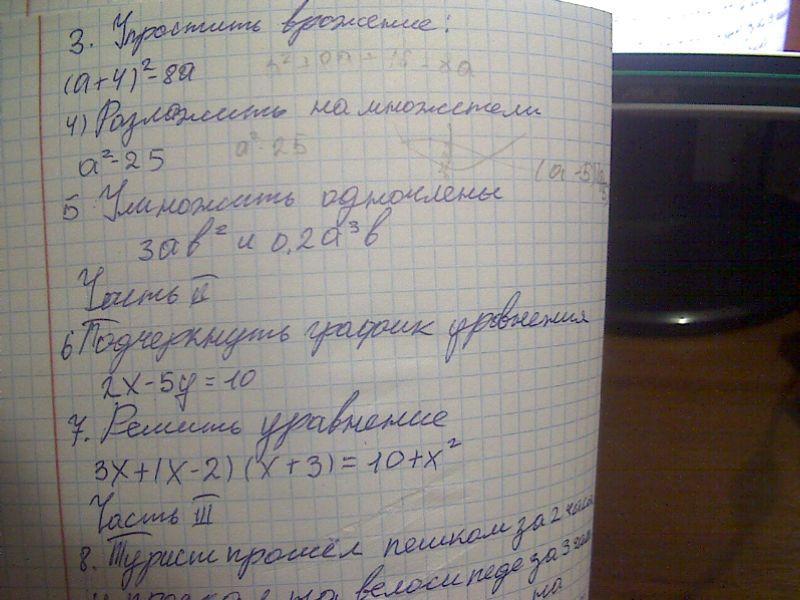 3. Упростить вражение:
(a+4)²-8a
4) Разложить на множители
a²-25
a²-25
(a-5)
5 Умножить одночлены
3ab² и 0,2a³b
Часть II
6 Подчеркнуть график уравнения
2x-5y=10
7. Решить уравнение
3x+(x-2)(x+3)=10+x²
Часть III
8. Турист прошёл пешком за 2 часа
велосипеде за 3
на